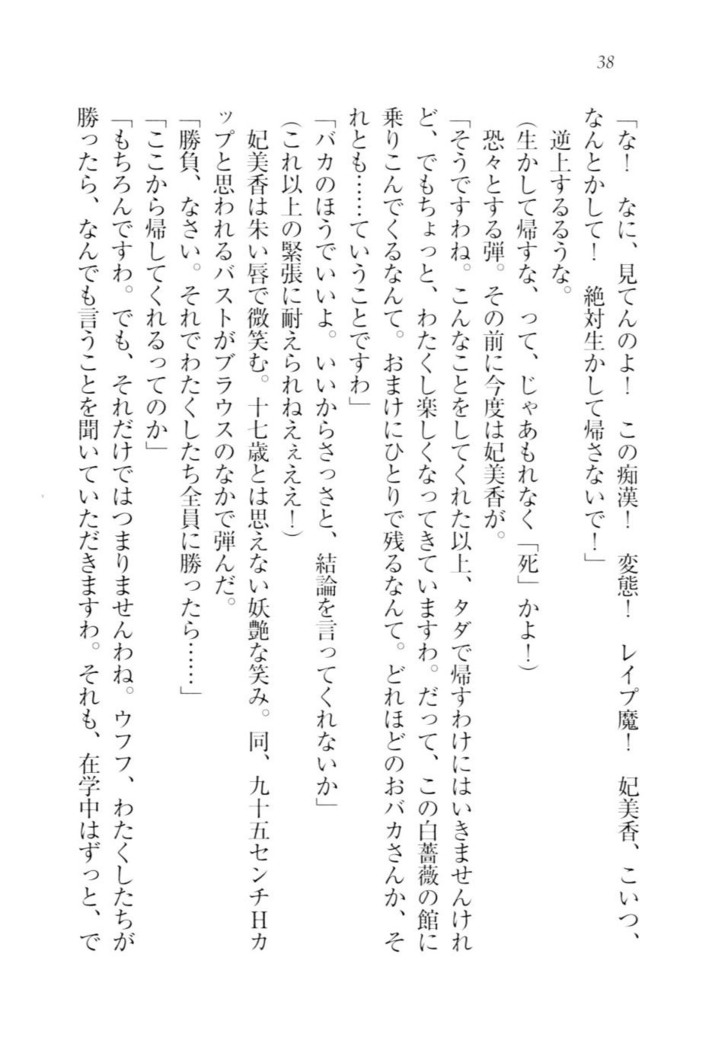 38
「な！　なに、見てんのよ！　この痴漢！　変態！　レイプ魔！　妃美香、こいつ、
なんとかして！　絶対生かして帰さないで！」
逆上するるうな。
（生かして帰すな、って、じゃあもれなく「死」かよ！）
恐々とする弾。その前に今度は妃美香が。
「そうですわね。こんなことをしてくれた以上、タダで帰すわけにはいきませんけれ
ど、でもちょっと、わたくし楽しくなってきていますわ。だって、この白薔薇の館に
乗りこんでくるなんて。おまけにひとりで残るなんて。どれほどのおバカさんか、そ
れとも……ていうことですわ」
「バカのほうでいいよ。いいからさっさと、結論を言ってくれないか」
（これ以上の緊張に耐えられねえぇええ！）
「勝負、なさい。それでわたくしたち全員に勝ったら……」
「ここから帰してくれるってのか」
「もちろんですわ。でも、それだけではつまりませんわね。ウフフ、わたくしたちが
勝ったら、なんでも言うことを聞いていただきますわ。それも、在学中はずっと、で